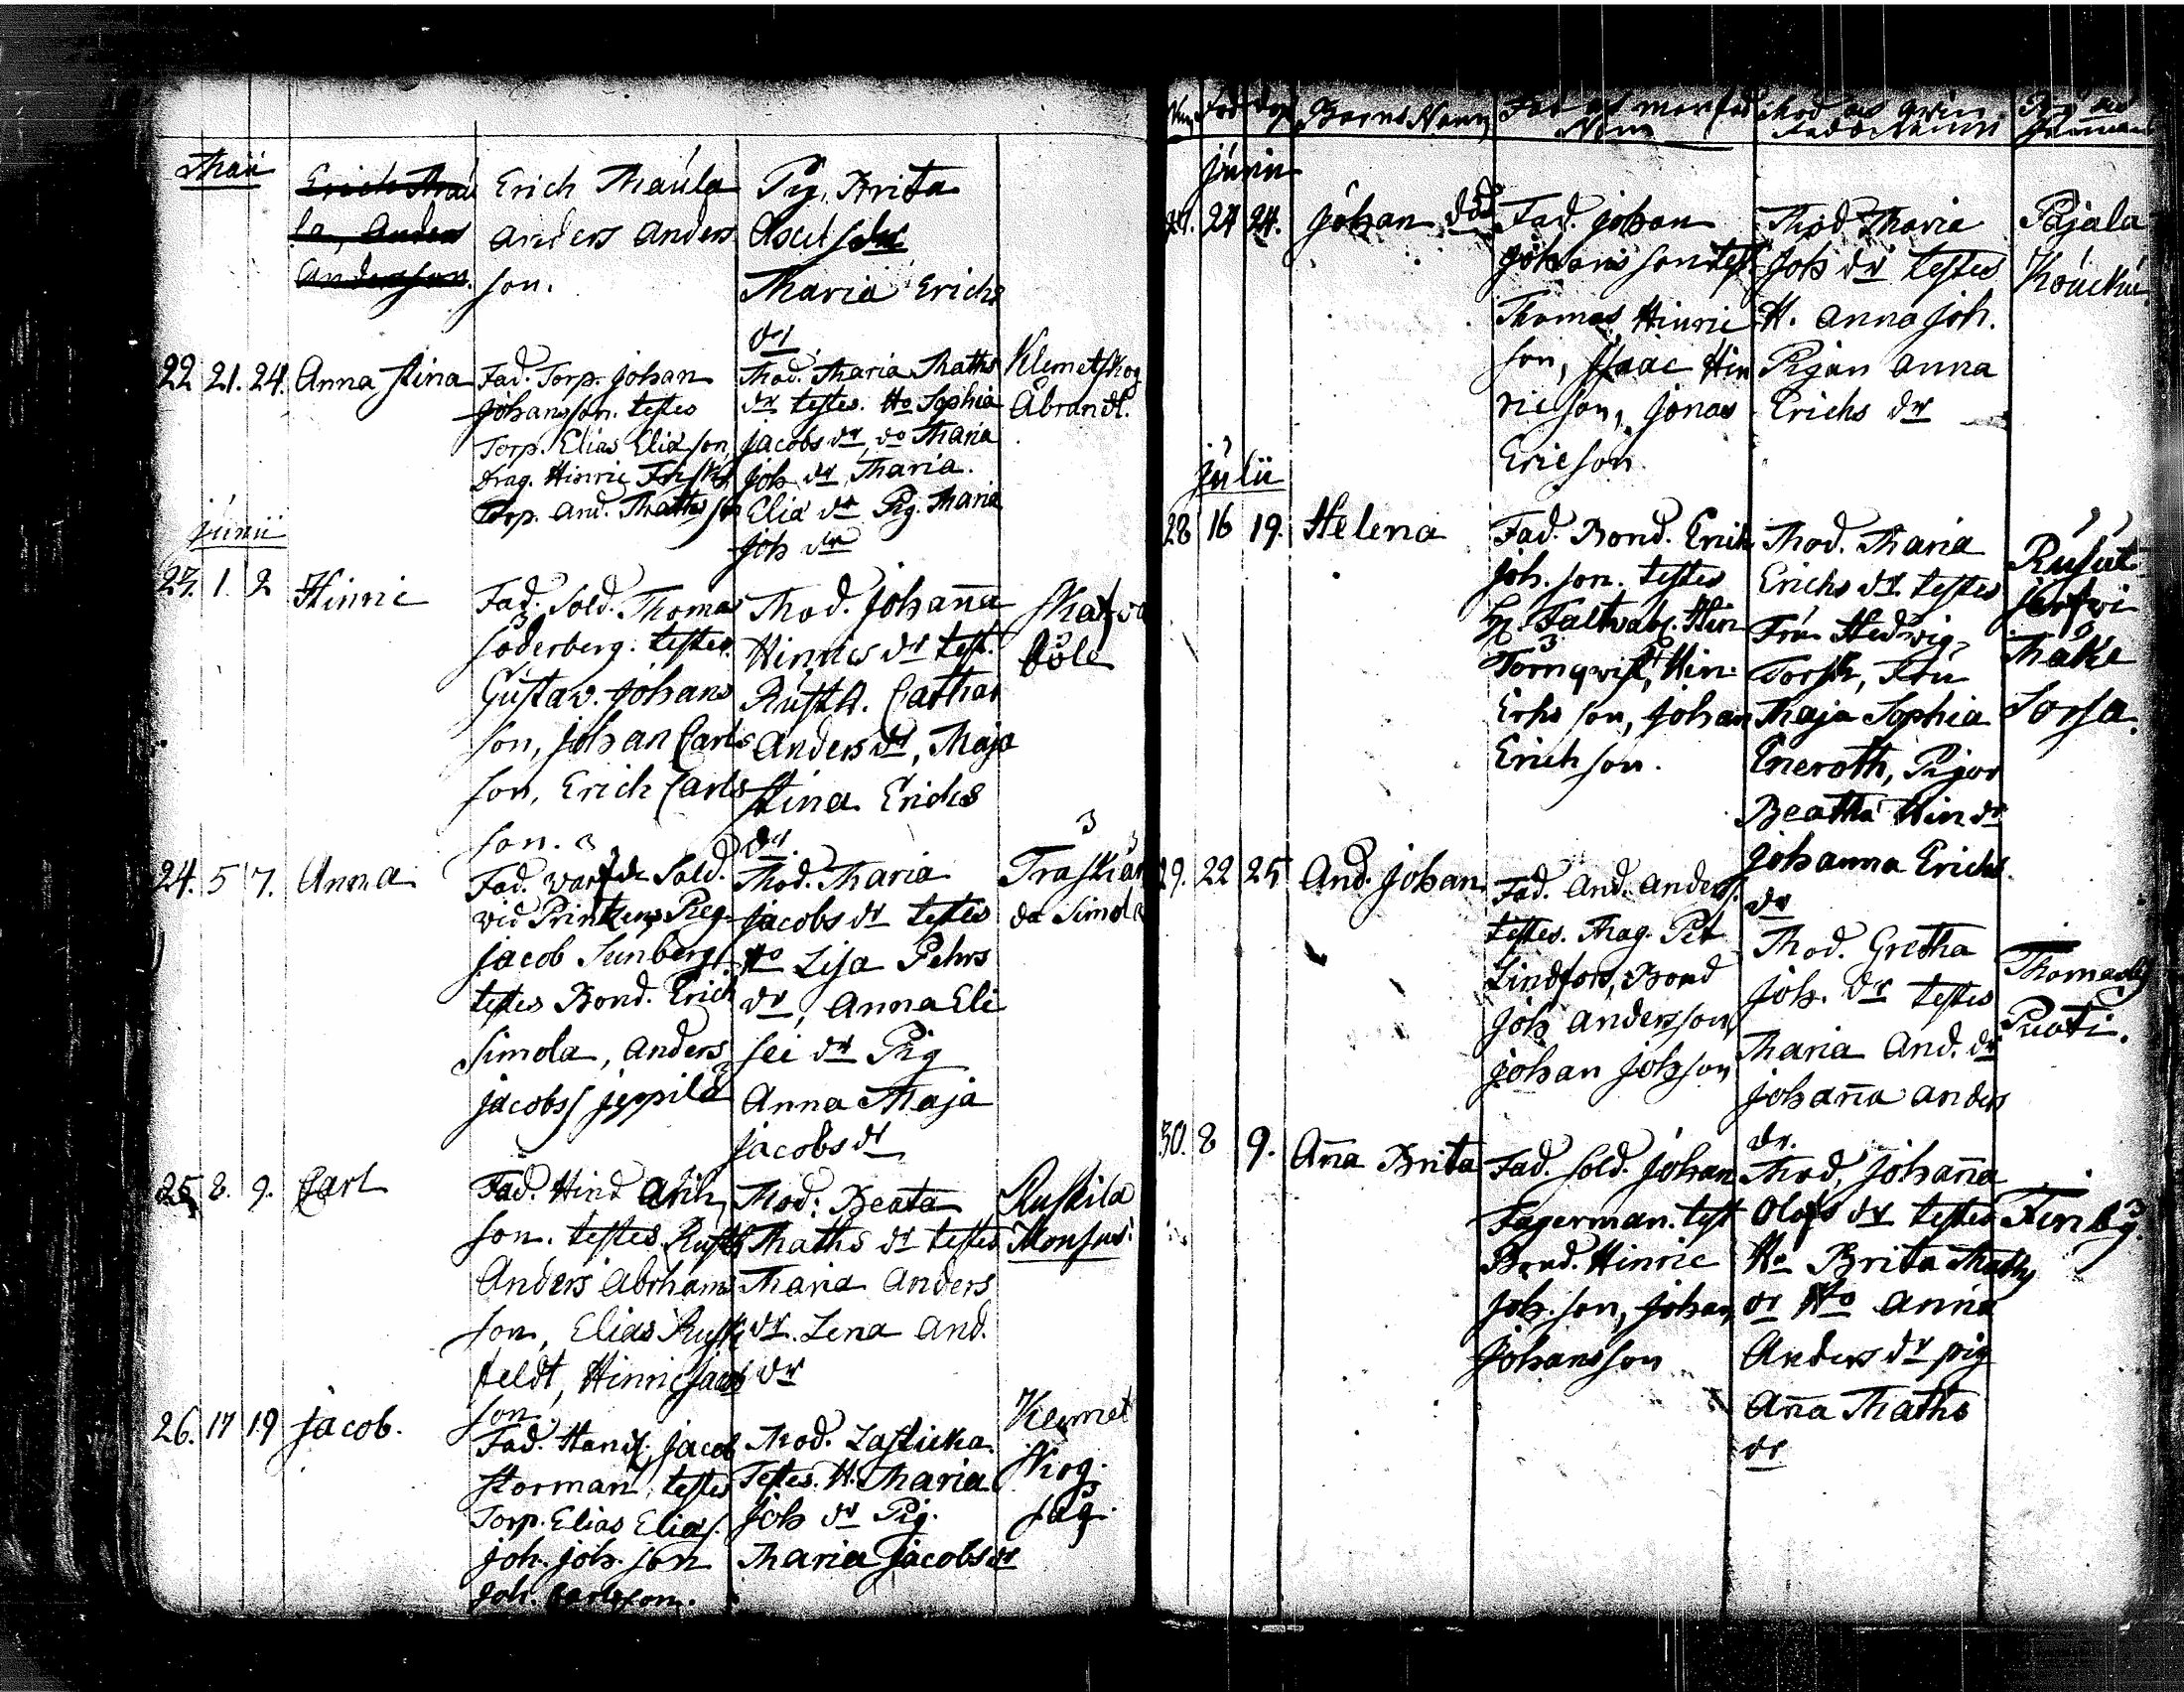 Maii
Erich Mau
la, Anders
Andersson.
Erich Maula
Anders Anders
son.
Pig. Brita
Axel
Maria Erichs
dr
22 21. 24. Anna Stina
Fad. Torp. Johan
Johansson. testes
Torp. Elias Elia son,
Drag. Hinric Frisk
Torp. And. Maths son
Mod. Maria Maths
dr testes. Ho Sophia
Jacobs dr, do Maria
Joh dr Maria.
Elia dr Pig. Maria
Joh dr
Klemetskog
Åbrandt.
Junii
23. 1. 2 Hinric
Fad. Sold. Thomas
Söderberg. testes.
Gustav. Johans
son, Johan Carls
son, Erich Carls
son.
Mod. Johan̄a
Hinrics dr test.
Rustth. Cathar
Anders dr, Maja
Stina Erichs
dr.
böle
24. 5 7. Anna
Fad. Sold.
vid Printzens Reg.
Jacob Sunberg.
testes Bond. Erich
Simola, Anders
Jacobss Jeppilä
Mod. Maria
Jacobs dr testes
Ho Lisa Pehrs
dr, Anna Eli
sei dr Pig
Anna Maja
Jacobs dr
Träskän
da Simola
25 8. 9. Carl
Fad. Hind
son. testes. Rusth
Anders Abrhams
son, Elias Rusk
feldt, Hinric Jacob
son.
Mod: Beata
Maths dr testes
Maria Anders
dr. Lena And.
dr
Ruskila
Monsas.
26. 17 19 Jacob.
Fad. Jacob
Storman, testes
Torp. Elias Elias.
Joh. Joh. son
Joh. Carlsson.
Mod. Lasticka.
Testes. H. Maria
Joh dr Pig.
Maria Jacobs dr
Klemet
skog.
såg.
Num Föd döp Barns Namn
Namn
Junii
27. 24 24. Johan död
Fad. Johan
Johans son test
Thomas Hinric
son, Isaac Hin
ricson, Jonas
Ericson.
Mod Maria
Joh dr testes
H. Anna Joh.
Pigan Anna
Erichs dr
Pajala
Kouckù
Julii
28 16 19. Helena
Fad. Bond. Erich
Joh. son. testes
Hr. Faltväb. Hin
Törnqvist, Hin.
Erhs son, Johan
Erich son.
Mod. Maria
Erichs dr. testes
Fru Hedvig
Torsk, Fru
Maja Sophia
Eneroth, Pigor
Beatha Hin dr
Johanna Erichs
dr
Rusut
jerfwi
Måke
Sorsa.
29. 22 25 And. Johan
Fad. And. Anders.
testes. Mag. Pet
Lindfors, Bond
Joh Andersson,
Johan Joh son
Mod. Gretha
Joh. dr testes
Maria And. dr
Johan̄a Anders
dr.
Thomasby
Puoti.
30. 8 9. An̄a Brita
Fad. Sold. Johan
Fagerman. test
Bond. Hinric
Joh. son, Johan
Johansson
Mod. Johan̄a
Olofs dr testes
Ho Brita Maths
dr Ho Anna
Anders dr pig
An̄a Maths
dr
Finby.